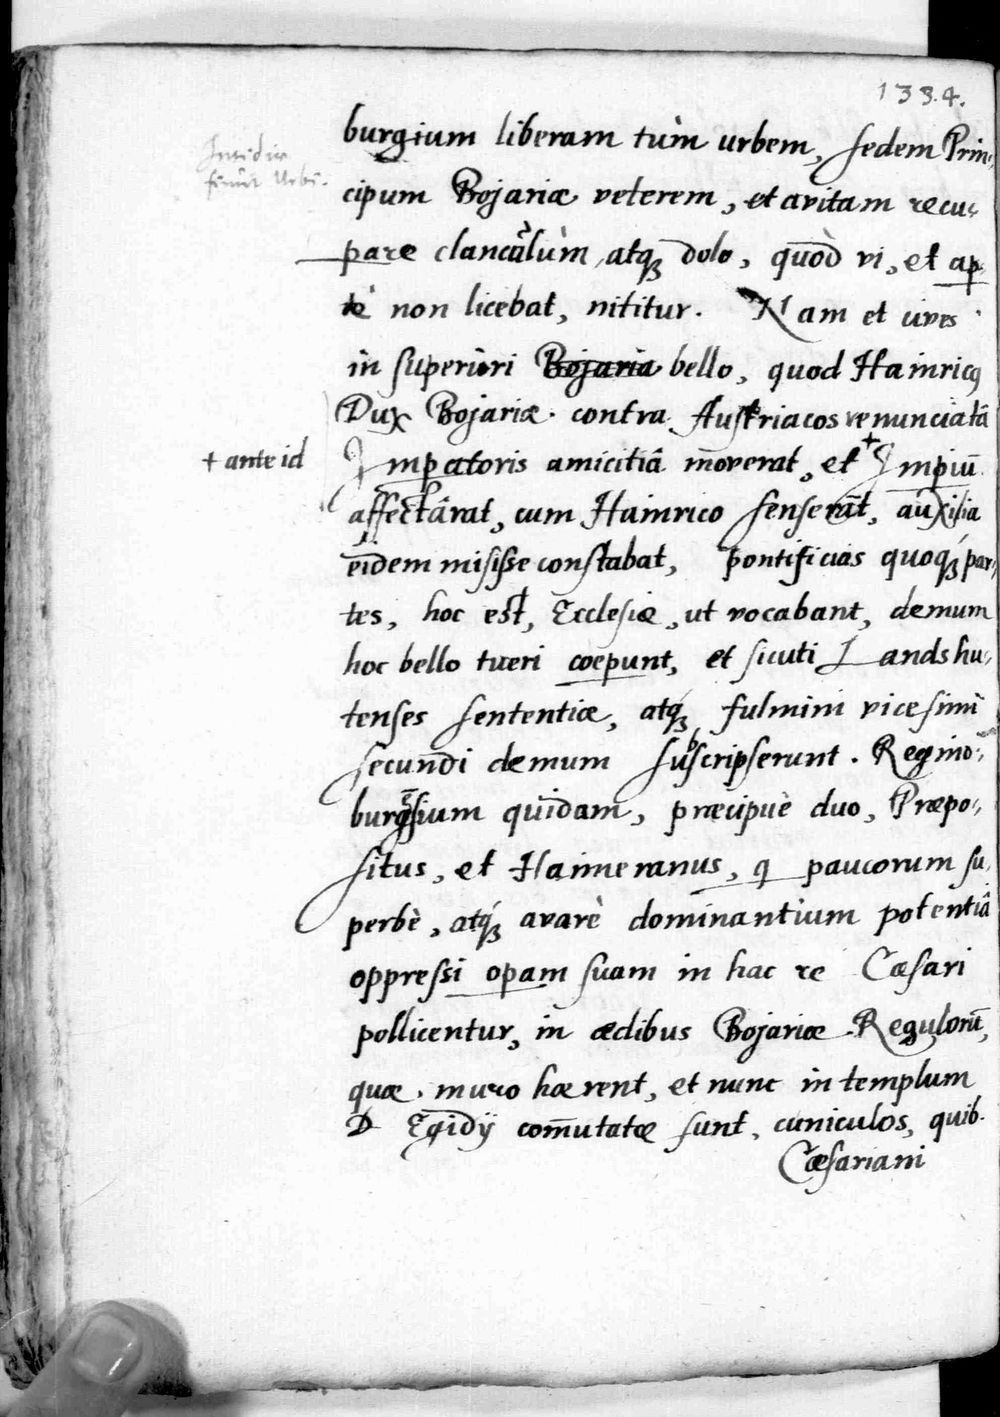 1334.
burgium liberam tùm urbem, sedem Prin-
cipum Bojariæ veterem, et avitam recu-
pare clanculùm, atqȝ dolo, quòd vi, et ap
tè non licebat, nititur. Nam et vires
in superiori Bojaria bello, quod Hainricq
Dux Bojariæ contra Austriacos renunciatâ
+ ante id
Impatoris amicitiâ moverat, et + Impiū
affectârat, cum Hainrico senserāt, auxilia
eidem misisse constabat, pontificias quoqȝ par-
tes, hoc est, Ecclesiæ, ut vocabant, demum
hoc bello tueri coepunt, et sicuti Landshu-
tenses sententiæ, atqȝ fulmini vicesimi
secundi demum subscripserunt. Regino-
burgensium quidam, præcipuè duo, Præpo-
situs, et Haimeranus, q paucorum su-
perbè, atqȝ avarè dominantium potentiâ
oppressi opam suam in hac re Cæsari
pollicentur, in ædibus Bojariæ Regulorū,
quæ muro hærent, et nunc in templum
D Egidÿ com̄utatæ sunt, cuniculos, quib.
Cæsariani